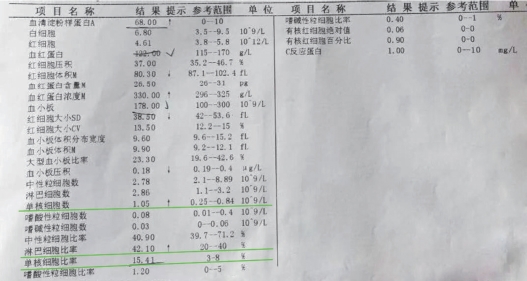 项目名称 结果 提示 参考范围 单位
血清淀粉样蛋白A 68.00 ↑ 0--10
白细胞 6.80 3.5--9.5 10^9/L
红细胞 4.61 3.8--5.8 10^12/L
血红蛋白 122.00 115--170 g/L
红细胞压积 37.00 35.2--46.7 %
红细胞体积M 80.30 ↓ 87.1--102.4 fL
血红蛋白含量M 26.50 26--31 pg
血红蛋白浓度M 330.00 ↑ 296--325 g/L
血小板 178.00 100--300 10^9/L
红细胞大小SD 38.50 ↓ 42--53.6 fL
红细胞大小CV 13.50 12.2--15 %
血小板体积分布宽度 9.60 9.6--15.2 fL
血小板体积M 9.90 9.2--12.1 fL
大型血小板比率 23.30 19.6--42.6 %
血小板压积 0.18 ↓ 0.19--0.4 μg/L
中性粒细胞数 2.78 2.1--8.89 10^9/L
淋巴细胞数 2.86 1.1--3.2 10^9/L
单核细胞数 1.05 ↑ 0.25--0.84 10^9/L
嗜酸性粒细胞数 0.08 0.01--0.4 10^9/L
嗜碱性粒细胞数 0.03 0--0.06 10^9/L
中性粒细胞比率 40.90 39.7--71.2 %
淋巴细胞比率 42.10 ↑ 20--40 %
单核细胞比率 15.41 3-8 %
嗜酸性粒细胞比率 1.20 0--5 %
项目名称 结果 提示 参考范围 单
嗜碱性粒细胞比率 0.40 0--1 %
有核红细胞绝对值 0.06 0--0
有核红细胞百分比 0.90 0--0
C反应蛋白 1.00 0--10 mg/L